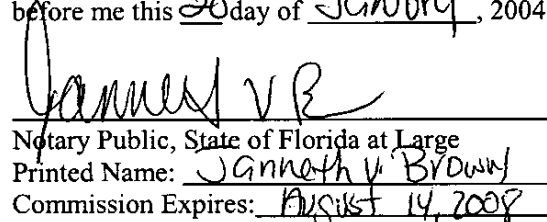 before me this 20 day of January, 2004
Notary Public, State of Florida at Large
Printed Name: Janneth V. Brown
Commission Expires: August 14, 2008